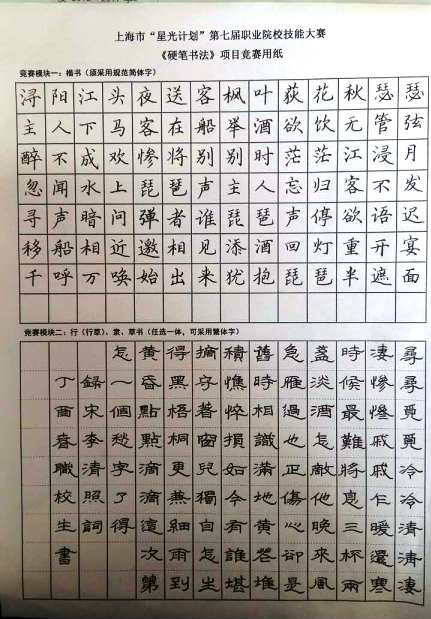 上海市“星光计划”第七届职业院校技能大赛
《硬笔书法》项目竞赛用纸
竞赛模块一：楷书（须采用规范简体字）
浔阳江头夜送客枫叶荻花秋瑟瑟
主人下马客在船举酒欲饮无管弦
醉不成欢惨将别别时茫茫江浸月
忽闻水上琵琶声主人忘归客不发
寻声暗问弹者谁琵琶声停欲语迟
移船相近邀相见添酒回灯重开宴
千呼万唤始出来犹抱琵琶半遮面
竞赛模块二：行（行草）、隶、草书（任选一体，可采用繁体字）
尋尋覓覓冷冷清清凄
凄慘慘戚戚乍暖還寒
時候最難將息三杯兩
盞淡酒怎敵他晚來風
急雁過也正傷心卻是
舊時相識滿地黃花堆
積憔悴損如今有誰堪
摘守著窗兒獨自怎生
得黑梧桐更兼細雨到
黃昏點點滴滴這次第
怎一個愁字了得
錄宋李清照詞
丁酉春職校生書